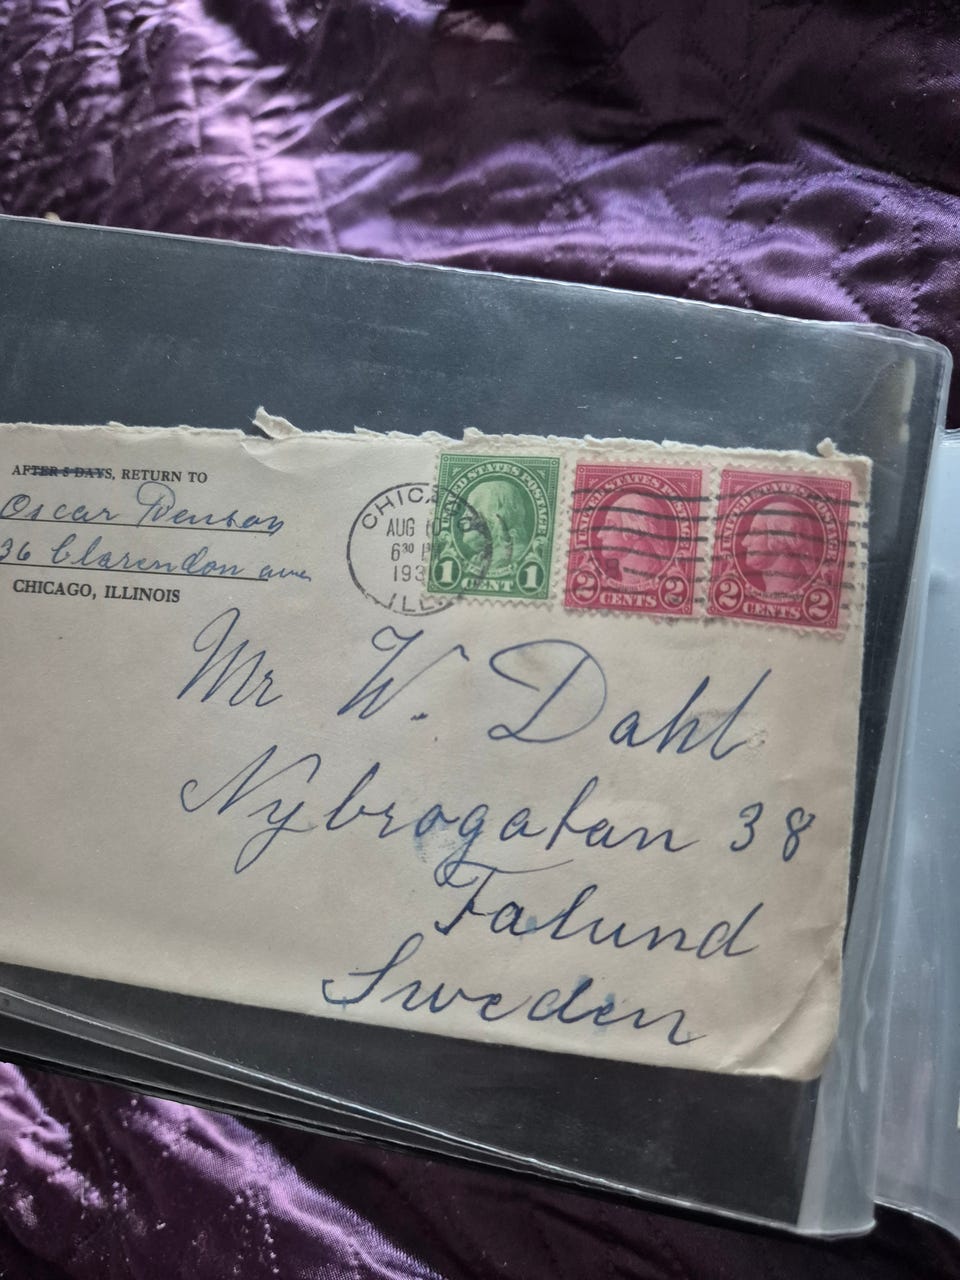 AFTER 5 DAYS, RETURN TO
Oscar
36 Clarendon ave
CHICAGO, ILLINOIS
CHICAGO
AUG 10
6³⁰ PM
193
ILL.
UNITED STATES POSTAGE
1 CENT 1
UNITED STATES POSTAGE
2 CENTS 2
UNITED STATES POSTAGE
2 CENTS 2
Mr W. Dahl
Nybrogatan 38
Falund
Sweden